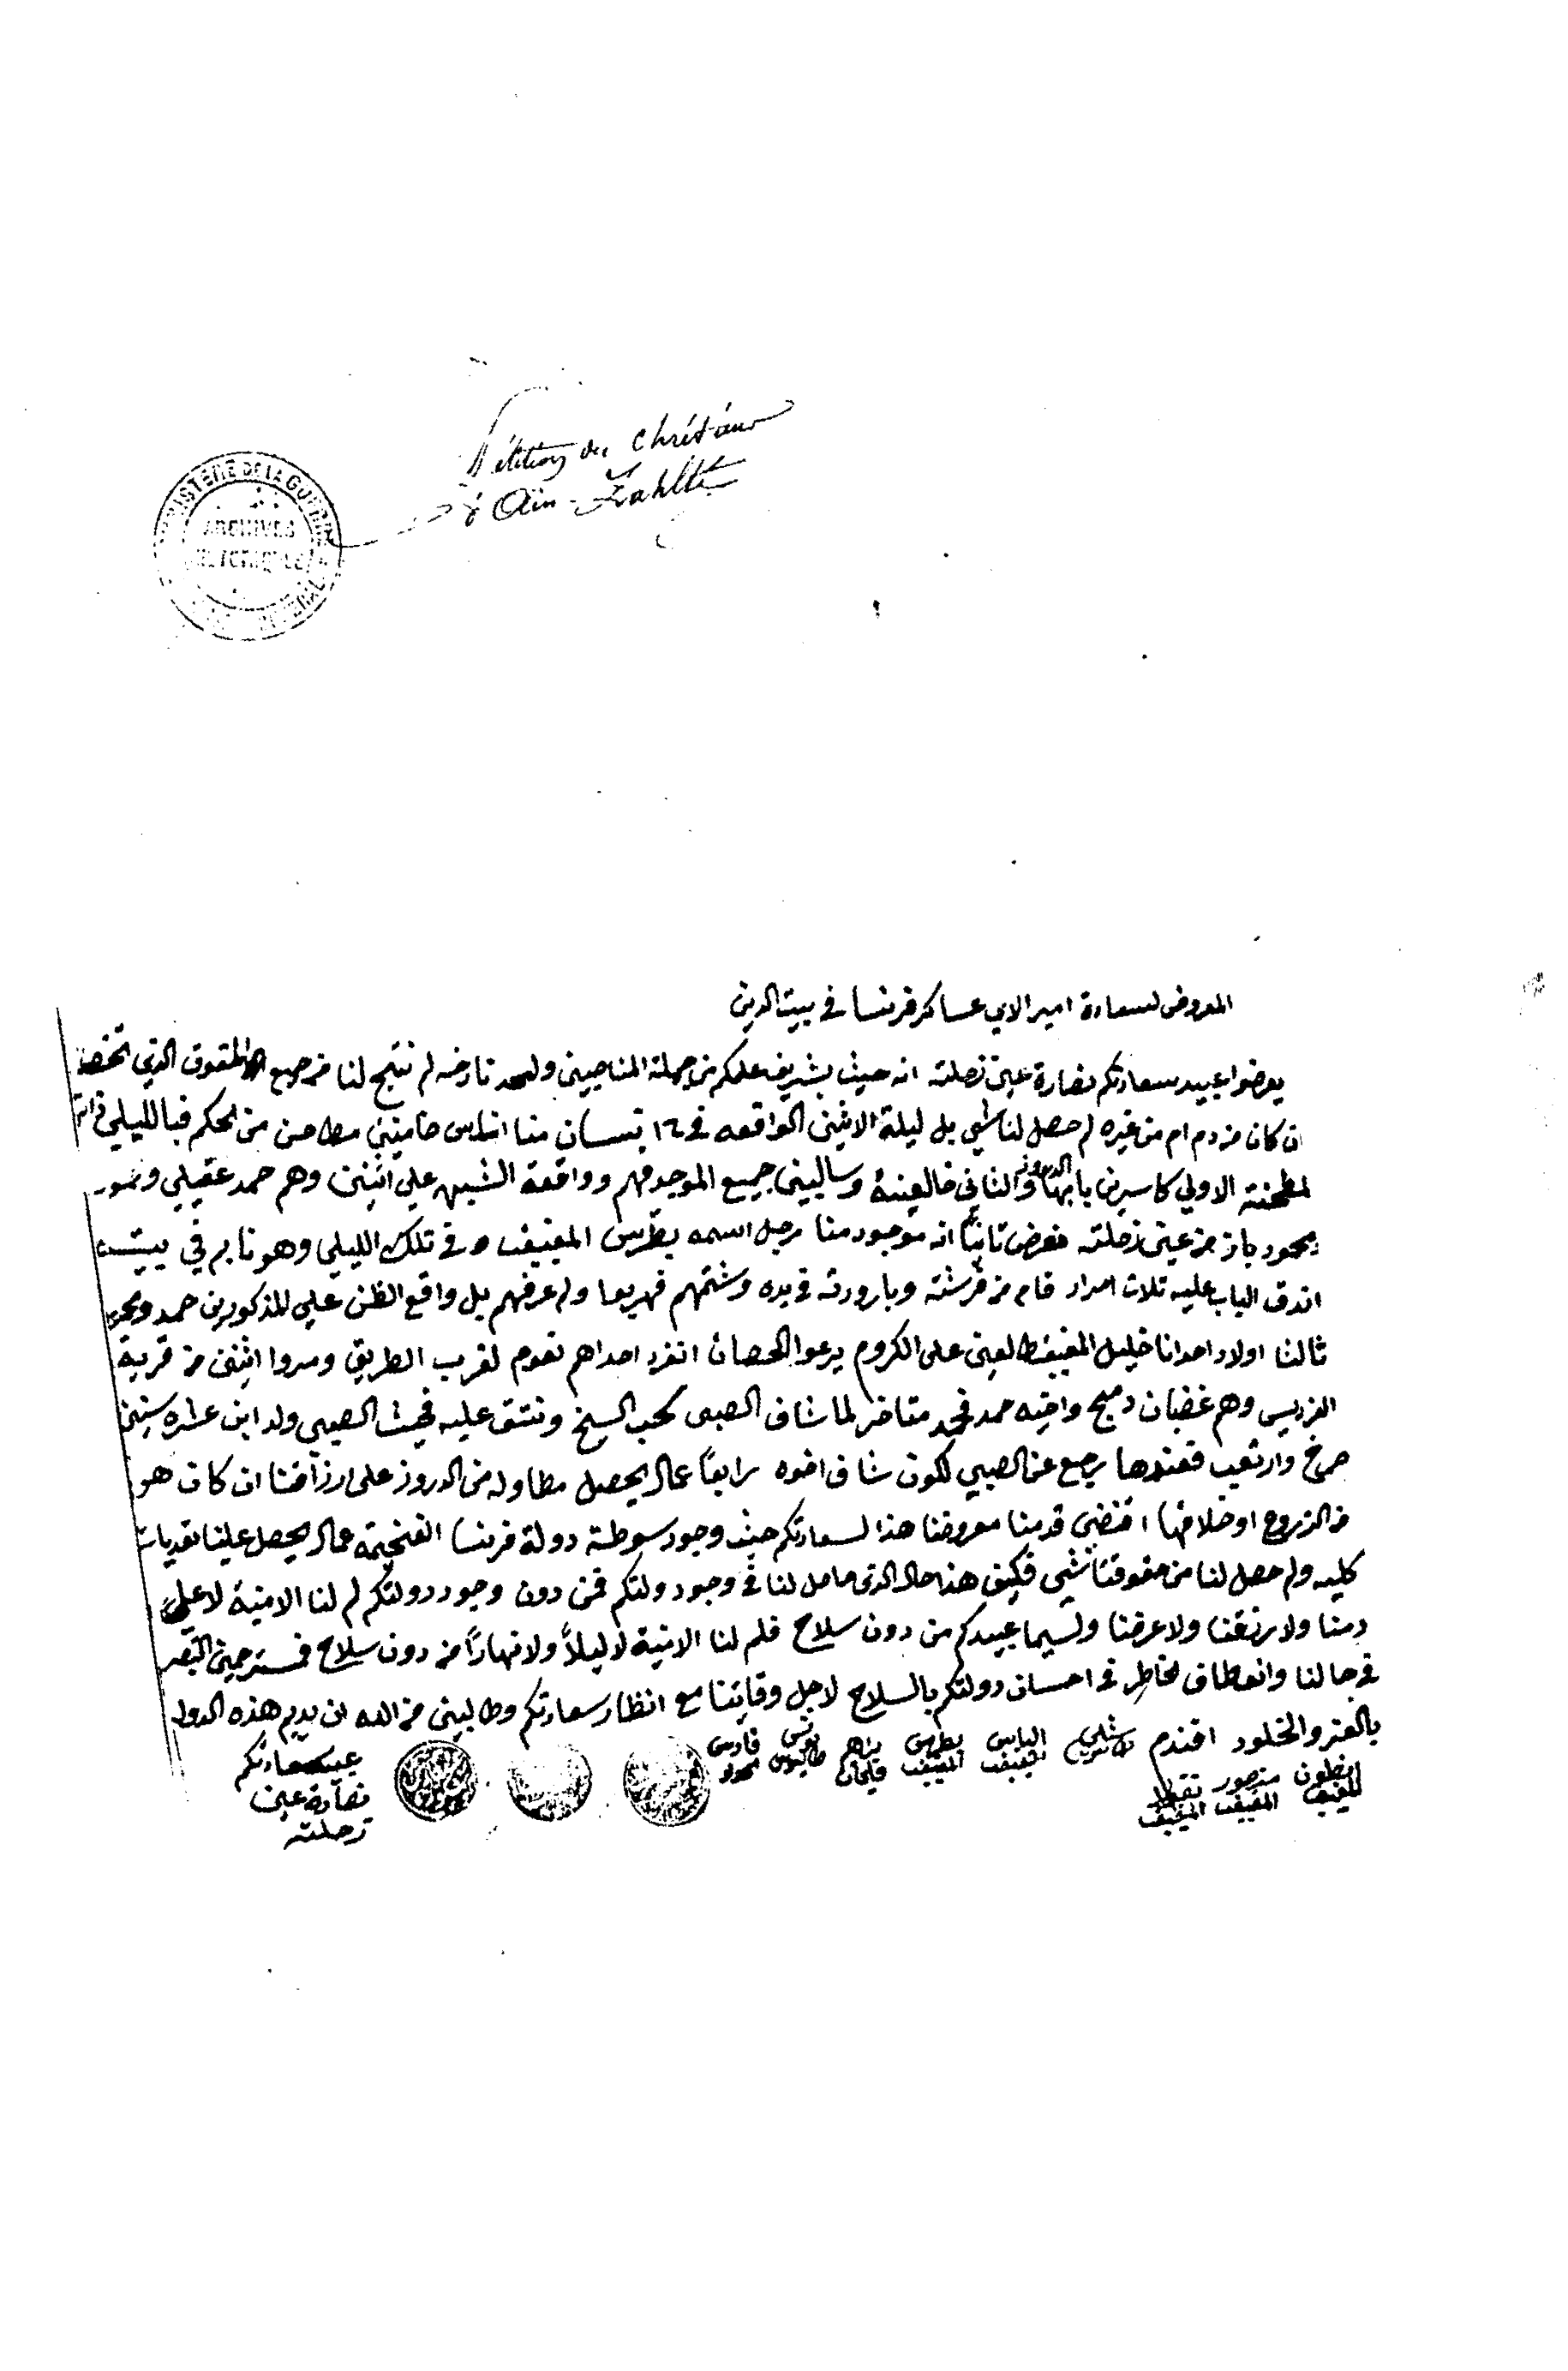 Pétition des Chrétiens
d'Aïn-Zahlté
MINISTÈRE DE LA GUERRE
ARCHIVES
المعروض لسعادة امير الاي عساكر فرنسا في بيت الدين
يعرضوا عبيد سعادتكم نصارة عين زحلته انه حيث بشريف علمكم من جملة المناصبين ولحد تارخه لم نتج لنا من جميع الحقوق الذي تخصنا
ان كان من دم ام من غيره لم حصل لنا شي بل ليلة الاثنين الواقعه في ١٦ نيسان منا اناس ضامنين مطاحن من الحكم فبالليلي
لمطحنة الاولي كاسرين بابهتا والثاني خالعينة وسالبين جميع الموجد فهم وواقعة الشبهه علي اثنين وهم حمد عقيلي ومحمود
باز من عين زحلته فعرض ثانيًا انه موجود منا رجل اسمه بطرس المغبغب و في تلك الليلي وهو نايم في بيته
اندق الباب عليه تلات امرار قام من فرشته وبارودته في يده وشتمهم فهربوا ولم عرفهم بل واقع الظن علي المذكورين حمد
ثالثا اولاد احدانا خليل المغبغب طالعين على الكروم يرعوا الحصان انفرد احداهم لقرب الطريق ومروا اثنين من قرية
الفرديس وهم غضبان دمج واخيه حمد متاخر لما شاف الصبي سحب السيخ ونتق عليه فحيث الصبي ولد ابن عشره سنين
صرخ وارتعب فعندها رجع عن الصبي لكون شاف اخوه رابعًا عمال يحصل مطاوله من الدروز على ارزاقنا ان كان هو
من الزروع او خلافها اقتضى قدمنا معروضنا هذا لسعادتكم حيث وجود سوطة دولة فرنسا الفخيمة عمال يحصل علينا تعديات
كليه ولم حصل لنا من حقوقنا شي فكيف هذا حال الذي حاصل لنا في وجود دولتكم فمن دون وجود دولتكم لم لنا الامنية لا علي
دمنا ولا رزقنا ولا عرضنا ولسيما عبيدكم من دون سلاح فلم لنا الامنية لا ليلاً ولا نهارًا من دون سلاح فمسترحمين النظر
في حالنا وانعطاف لخاطر في احسان دولتكم بالسلاح لاجل وقايتنا مع انظار سعادتكم وطالبين من الله ان يديم هذه الدوله
بالعز والخلود افندم
الياس المغبغب بطرس المغبغب
انطون المغبغب منصور المغبغب نقولا المغبغب
عبيد سعادتكم
نصارة عين
زحلته